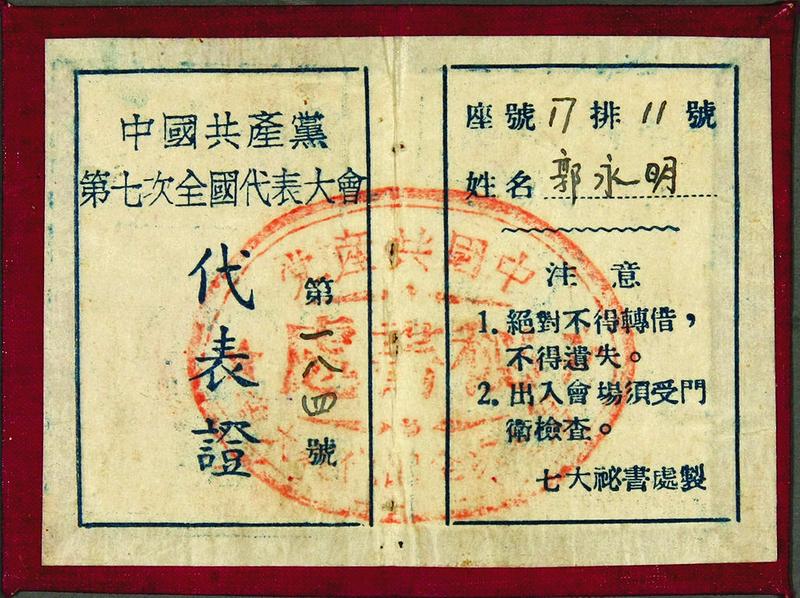 中國共產黨
第七次全國代表大會
代表證
第一八四號
座號17排11號
姓名 郭永明
注意
1. 絕對不得轉借，
不得遺失。
2. 出入會場須受門
衛檢查。
七大祕書處製
中國共產党